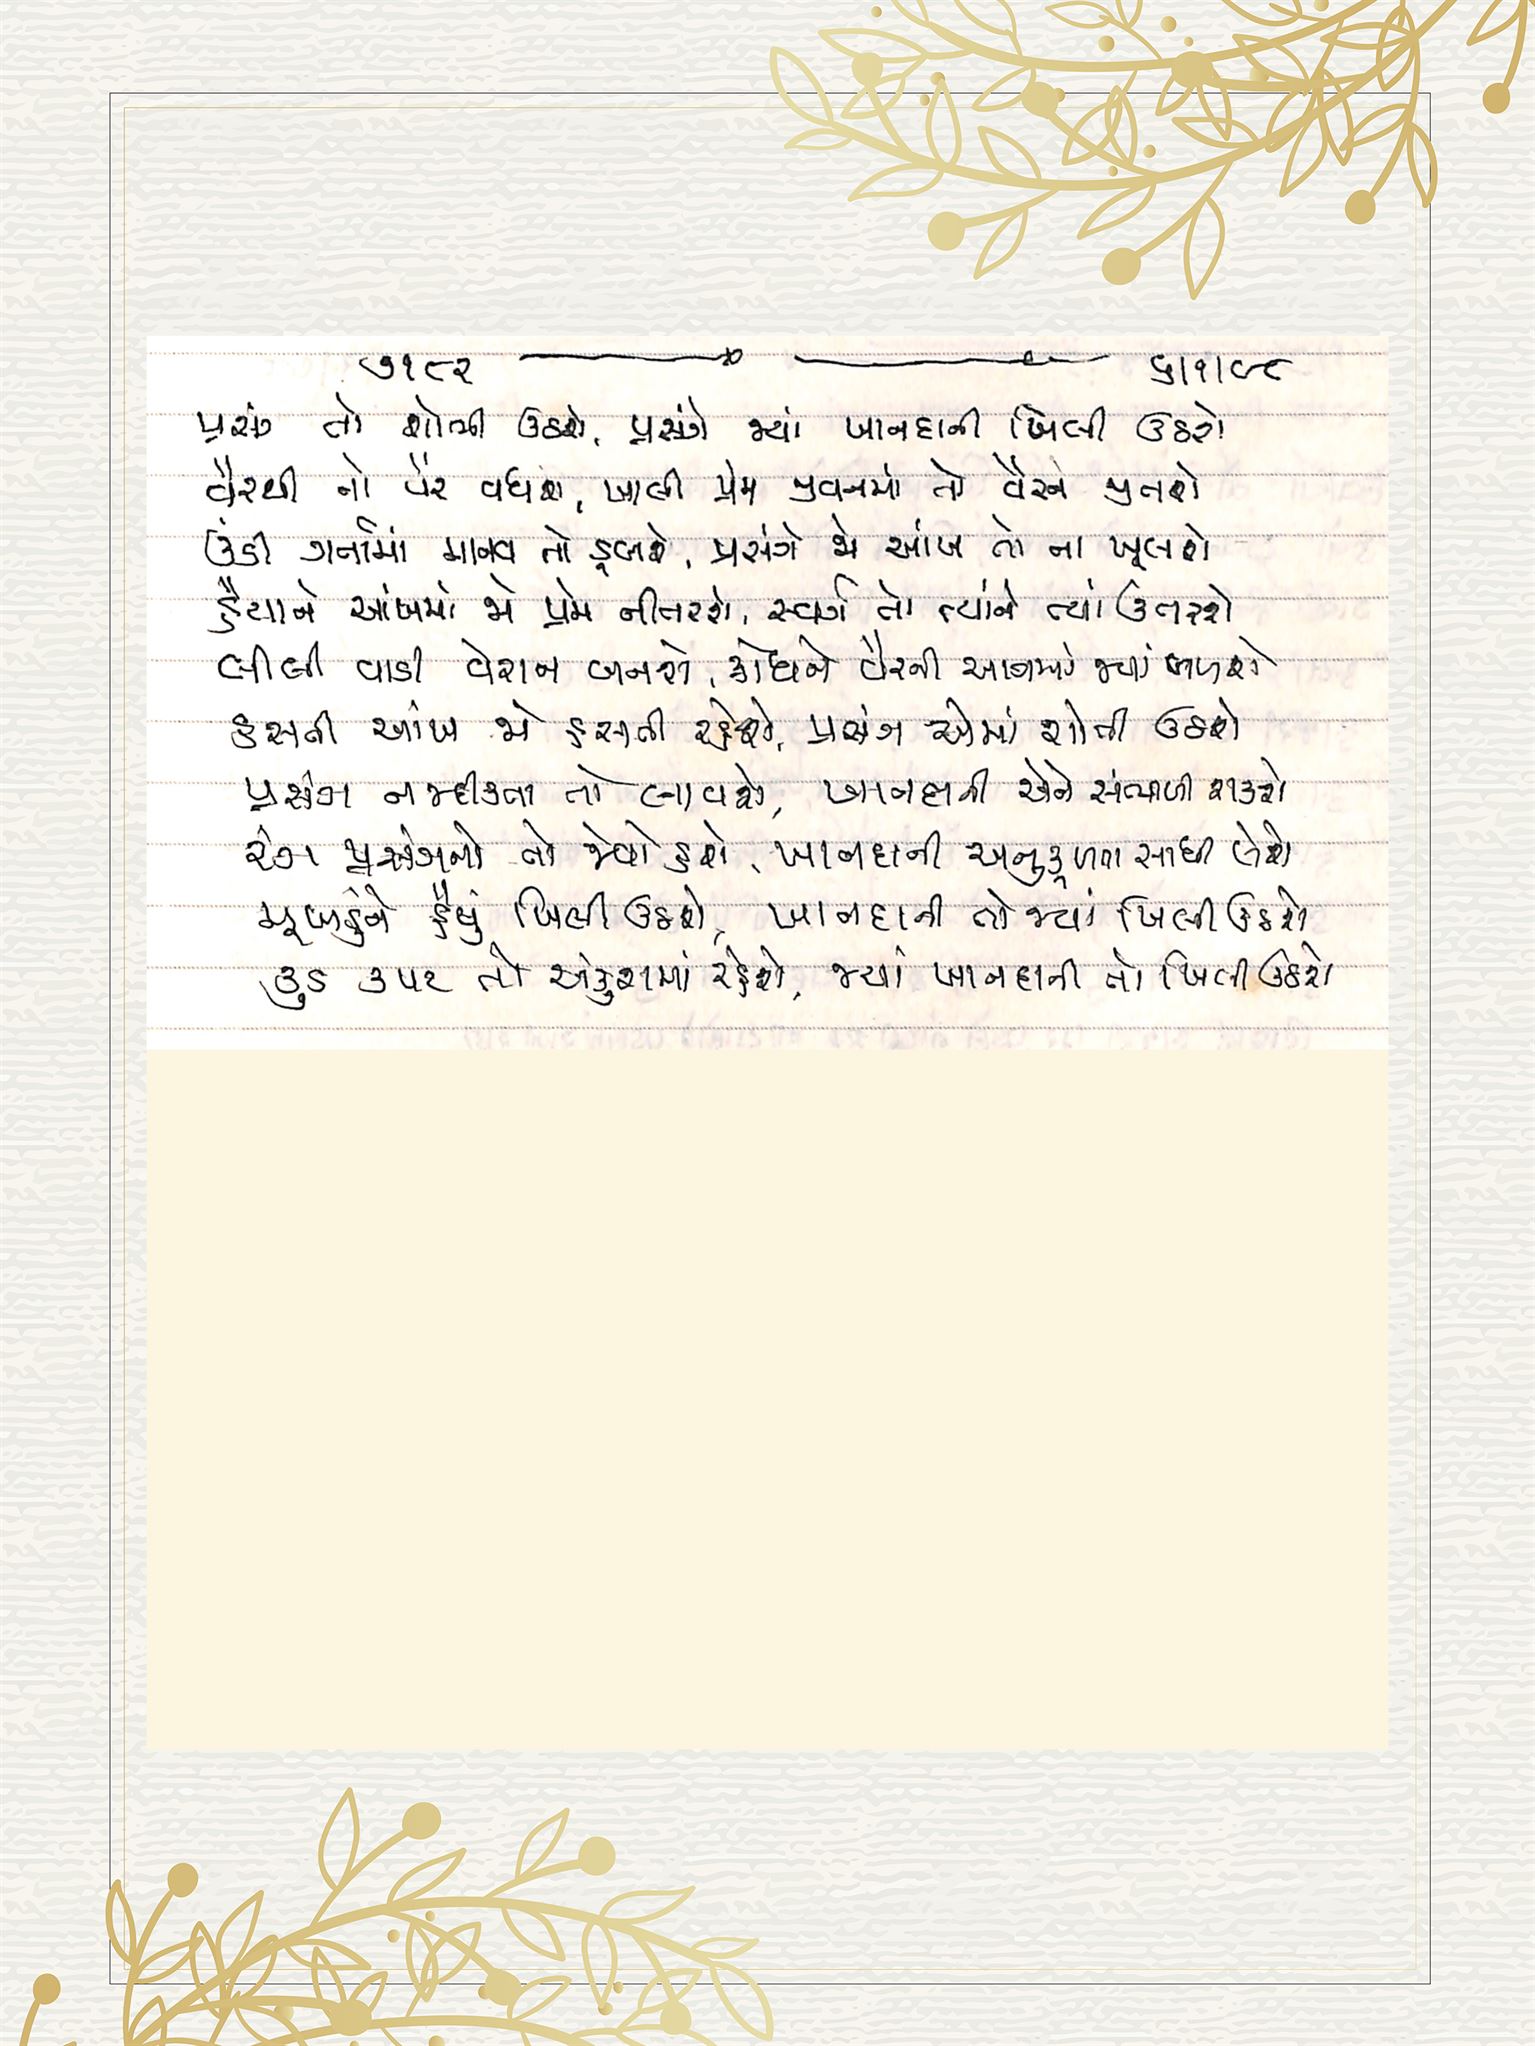 ૭૧૮૨ ૬/૧/૯૮
પ્રસંગ તો શોભી ઉઠશે, પ્રસંગે જ્યાં ખાનદાની ખિલી ઉઠશે
વૈરથી તો વૈર વધશે, ખાલી પ્રેમ જીવનમાં તો વૈરને જીતશે
ઉંડી ગર્તામાં માનવ તો ડૂબશે, પ્રસંગે જો આંખ તો ના ખૂલશે
હૈયાને આંખમાં જો પ્રેમ નીતરશે, સ્વર્ગ તો ત્યાંને ત્યાં ઉતરશે
લીલી વાડી વેરાન બનશે, ક્રોધને વૈરની આગમાં જ્યાં બળશે
હસતી આંખ જો હસતી રહેશે, પ્રસંગ એમાં શોભી ઉઠશે
પ્રસંગ નજદીકતા તો લાવશે, ખાનદાની એને સંભાળી શકશે
રંગ પ્રસંગનો તો જેવો હશે, ખાનદાની અનુકૂળતા સાધી લેશે
મૂખડુંને હૈયું ખિલી ઉઠશે, ખાનદાની તો જ્યાં ખિલી ઉઠશે
કુડ કપટ તો અંકુશમાં રહેશે, જ્યાં ખાનદાની તો ખિલી ઉઠશે